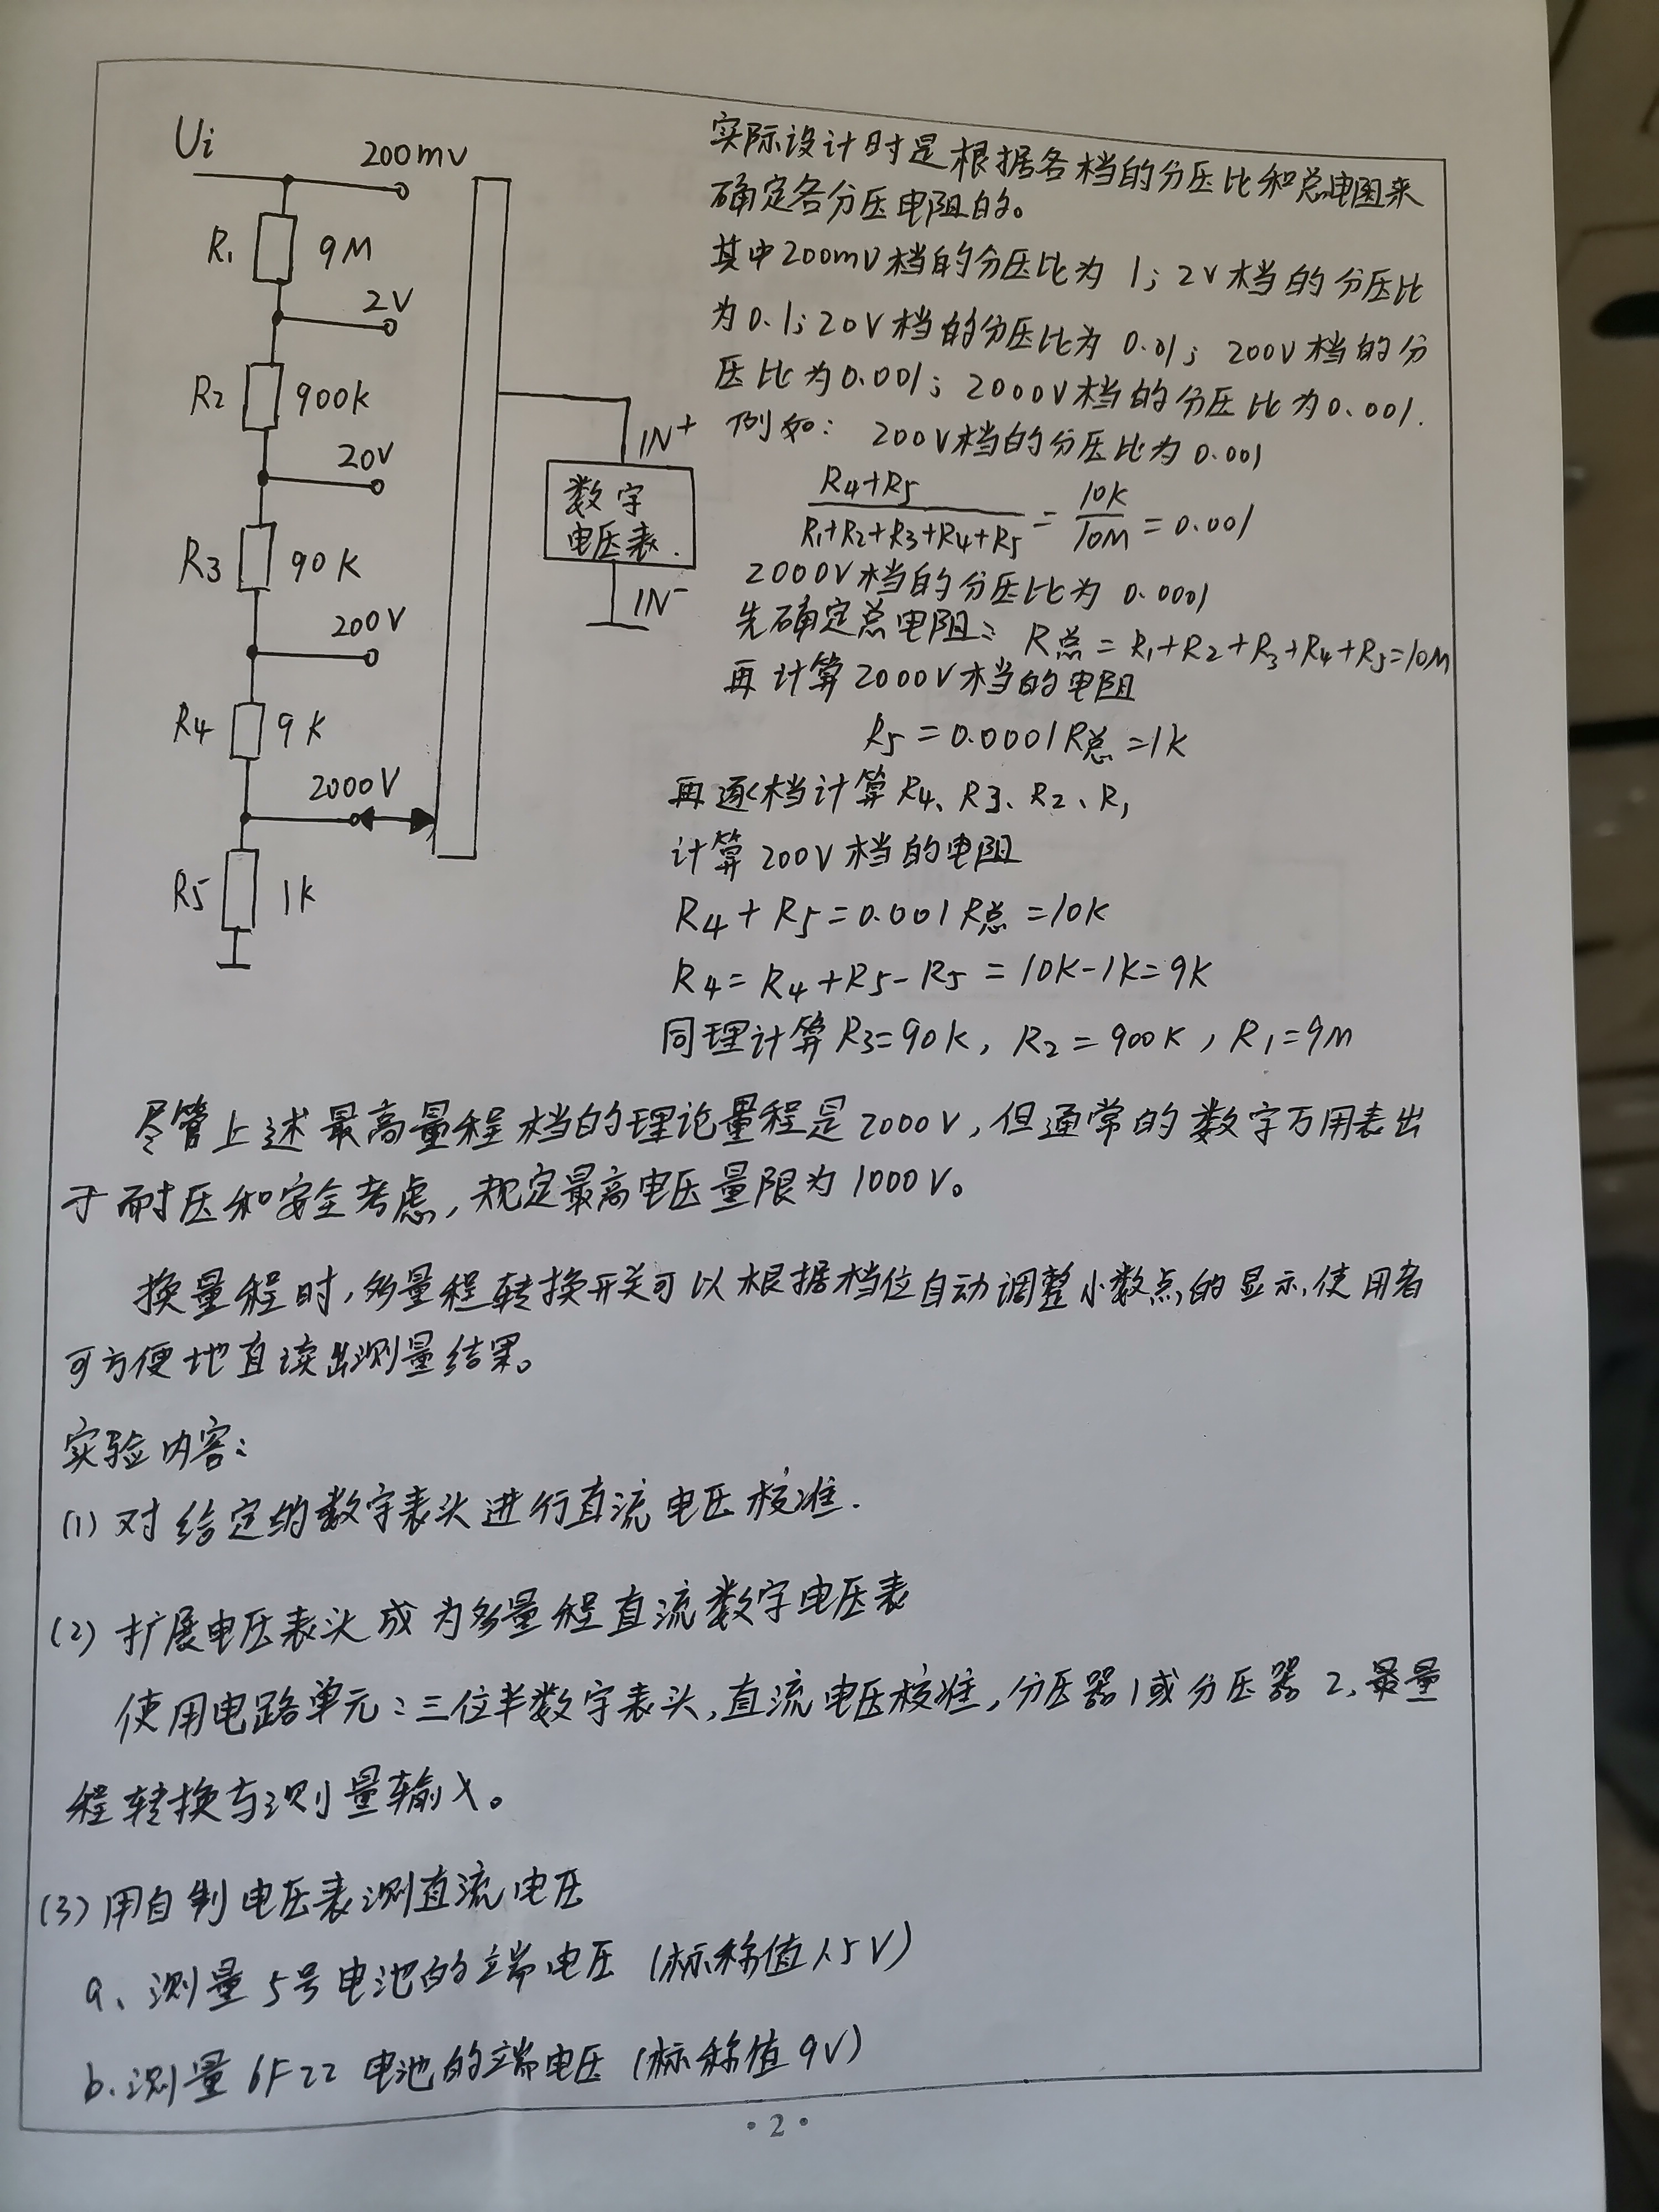 Ui
200mV
R1 9M
2V
R2 900k
20V
R3 90K
200V
R4 9K
2000V
R5 1k
IN+
数字
电压表.
IN-
实际设计时是根据各档的分压比和总电阻来
确定各分压电阻的。
其中200mV档的分压比为1;2V档的分压比
为0.1;20V档的分压比为0.01;200V档的分
压比为0.001;2000V档的分压比为0.001.
例如: 200V档的分压比为0.001
(R4+R5)/(R1+R2+R3+R4+R5) = 10K/10M = 0.001
2000V档的分压比为 0.0001
先确定总电阻: R总=R1+R2+R3+R4+R5=10M
再计算2000V档的电阻
R5=0.0001R总=1K
再逐档计算R4、R3、R2、R1
计算200V档的电阻
R4+R5=0.001R总=10K
R4=R4+R5-R5=10K-1K=9K
同理计算R3=90k, R2=900K, R1=9M
尽管上述最高量程档的理论量程是2000V,但通常的数字万用表出
于耐压和安全考虑,规定最高电压量限为1000V。
换量程时,多量程转换开关可以根据档位自动调整小数点的显示,使用者
可方便地直读出测量结果。
实验内容:
(1)对给定的数字表头进行直流电压校准.
(2)扩展电压表头成为多量程直流数字电压表
使用电路单元:三位半数字表头,直流电压校准,分压器1或分压器2,最量
程转换与测量输入。
(3)用自制电压表测直流电压
a、测量5号电池的端电压(标称值1.5V)
b.测量6F22电池的端电压(标称值9V)
·2·